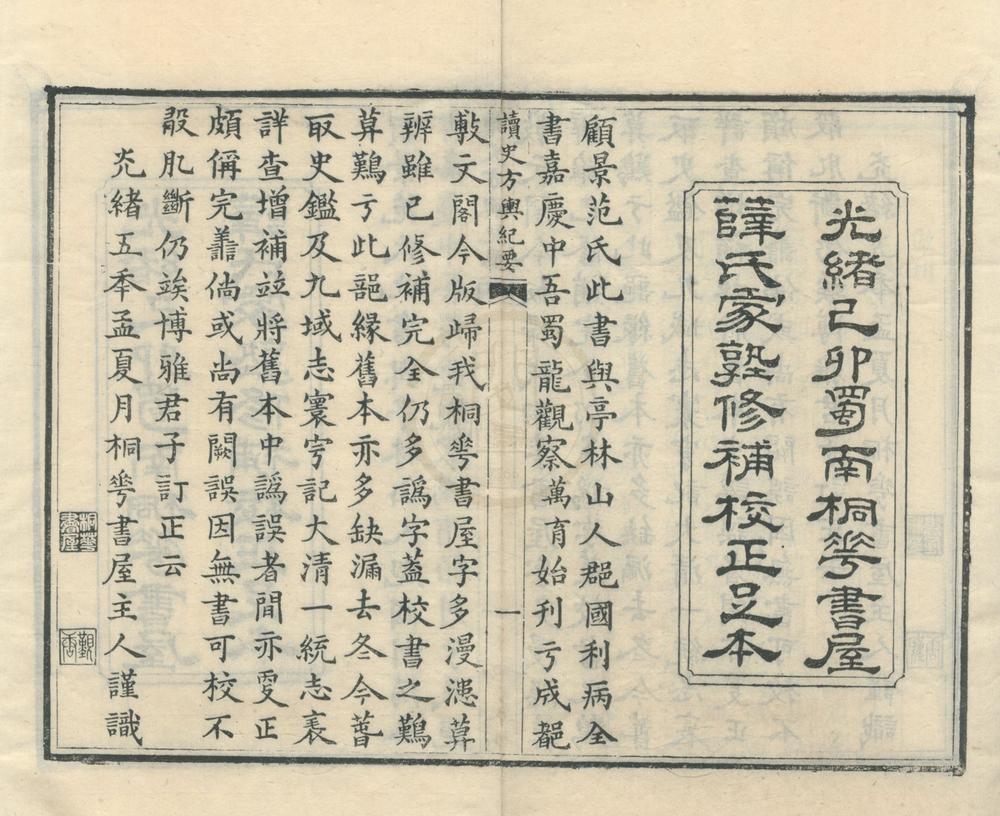 光緒己卯蜀南桐華書屋
薛氏家塾修補校正足本
顧景范氏此書與亭林山人郡國利病全
書嘉慶中吾蜀龍觀察萬育始刊亏成都
讀史方輿紀要
一
敷文閣今版歸我桐華書屋字多漫漶算
辨雖已修補完全仍多譌字蓋校書之難
算難亏此部緣舊本亦多缺漏去冬今春
取史鑑及九域志寰宇記大清一統志衺
詳查增補竝將舊本中譌誤者間亦叓正
頗偁完善倘或尚有闕誤因無書可校不
𣪊肊斷仍竢博雅君子訂正云
光緒五季孟夏月桐華書屋主人謹識
桐華書屋